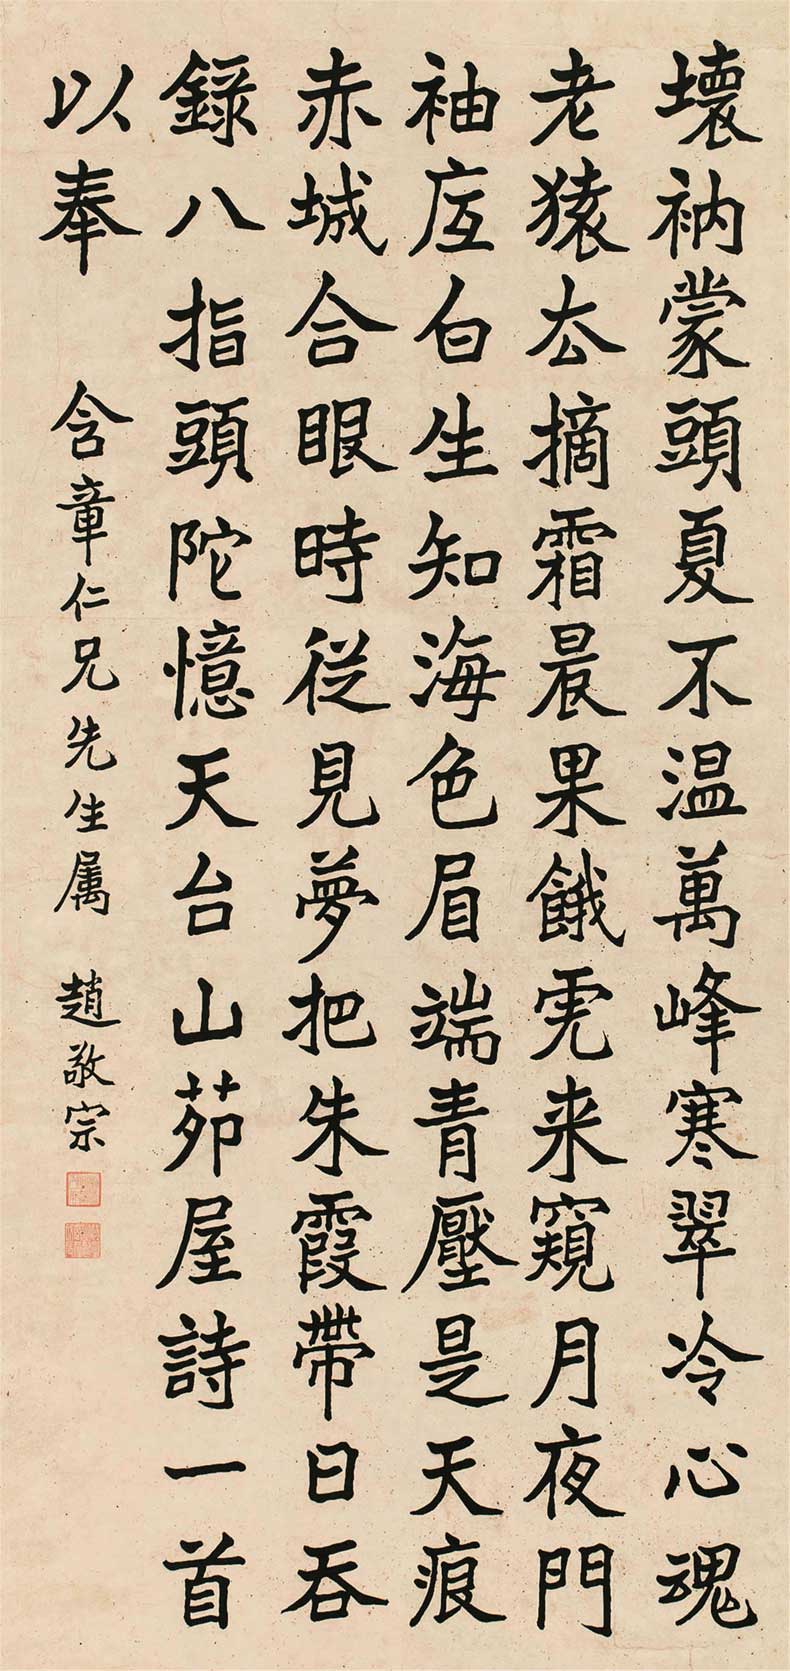 壞衲蒙頭夏不温萬峰寒翠冷心魂
老猿厺摘霜晨果餓虎来窺月夜門
袖底白生知海色眉端青壓是天痕
赤城合眼時從見夢把朱霞帶日吞
錄八指頭陀憶天台山茆屋詩一首
以奉 含章仁兄先生属 趙敬宗